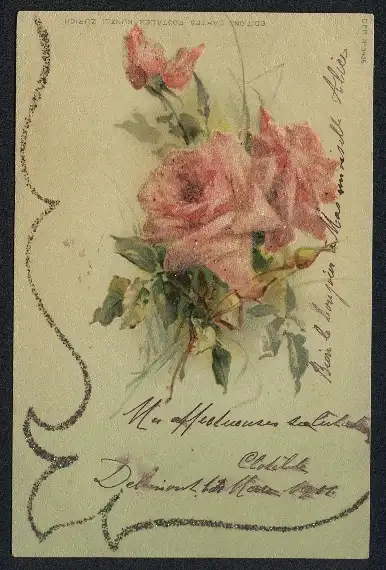 EDITIONS CARTES POSTALES KÜNZLI ZÜRICH
DEP. No
Bien le bonjour à Mademoiselle Alice
Mes affectueuses salutations
Clotilde
Delémont,